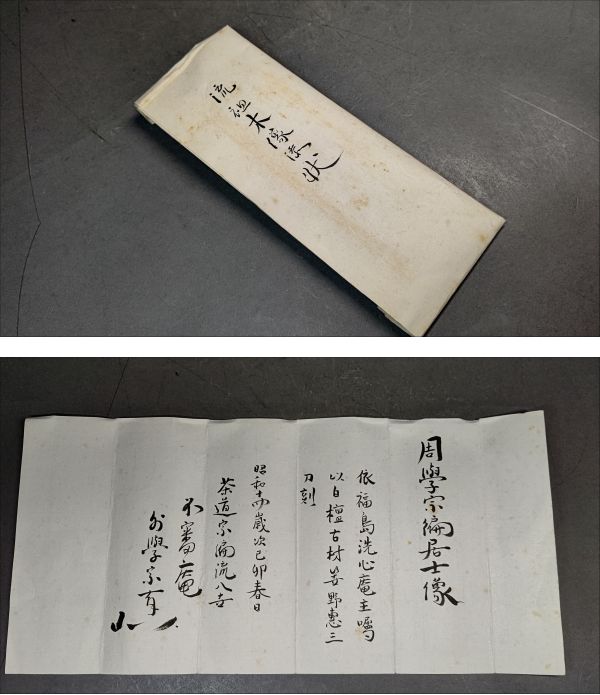 流祖木像添状
周學宗徧居士像
依福島洗心庵主囑
以白檀古材笠野惠三
刀刻
昭和十四歳次己卯春日
茶道宗徧流八世
不審庵
學宗有